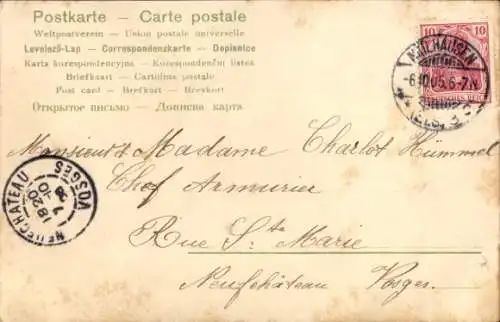 Postkarte — Carte postale
Weltpostverein — Union postale universelle
Levelező-Lap — Correspondenzkarte — Dopisnice
Karta korespondencyjna — Korespondenční listek
Briefkaart — Cartolina postale
Post card — Brefkort — Brevkort
Открытое письмо — Дописна карта
10 10
MÜLHAUSEN
-6.10.05.6-7N.
(ELS.)
DEUTSCHES REICH
Monsieur & Madame Charlot Hümmel
Chef Armurier
Rue Ste Marie
Neufchâteau Vosges.
NEUFCHATEAU
18 20
7 10
VOSGES